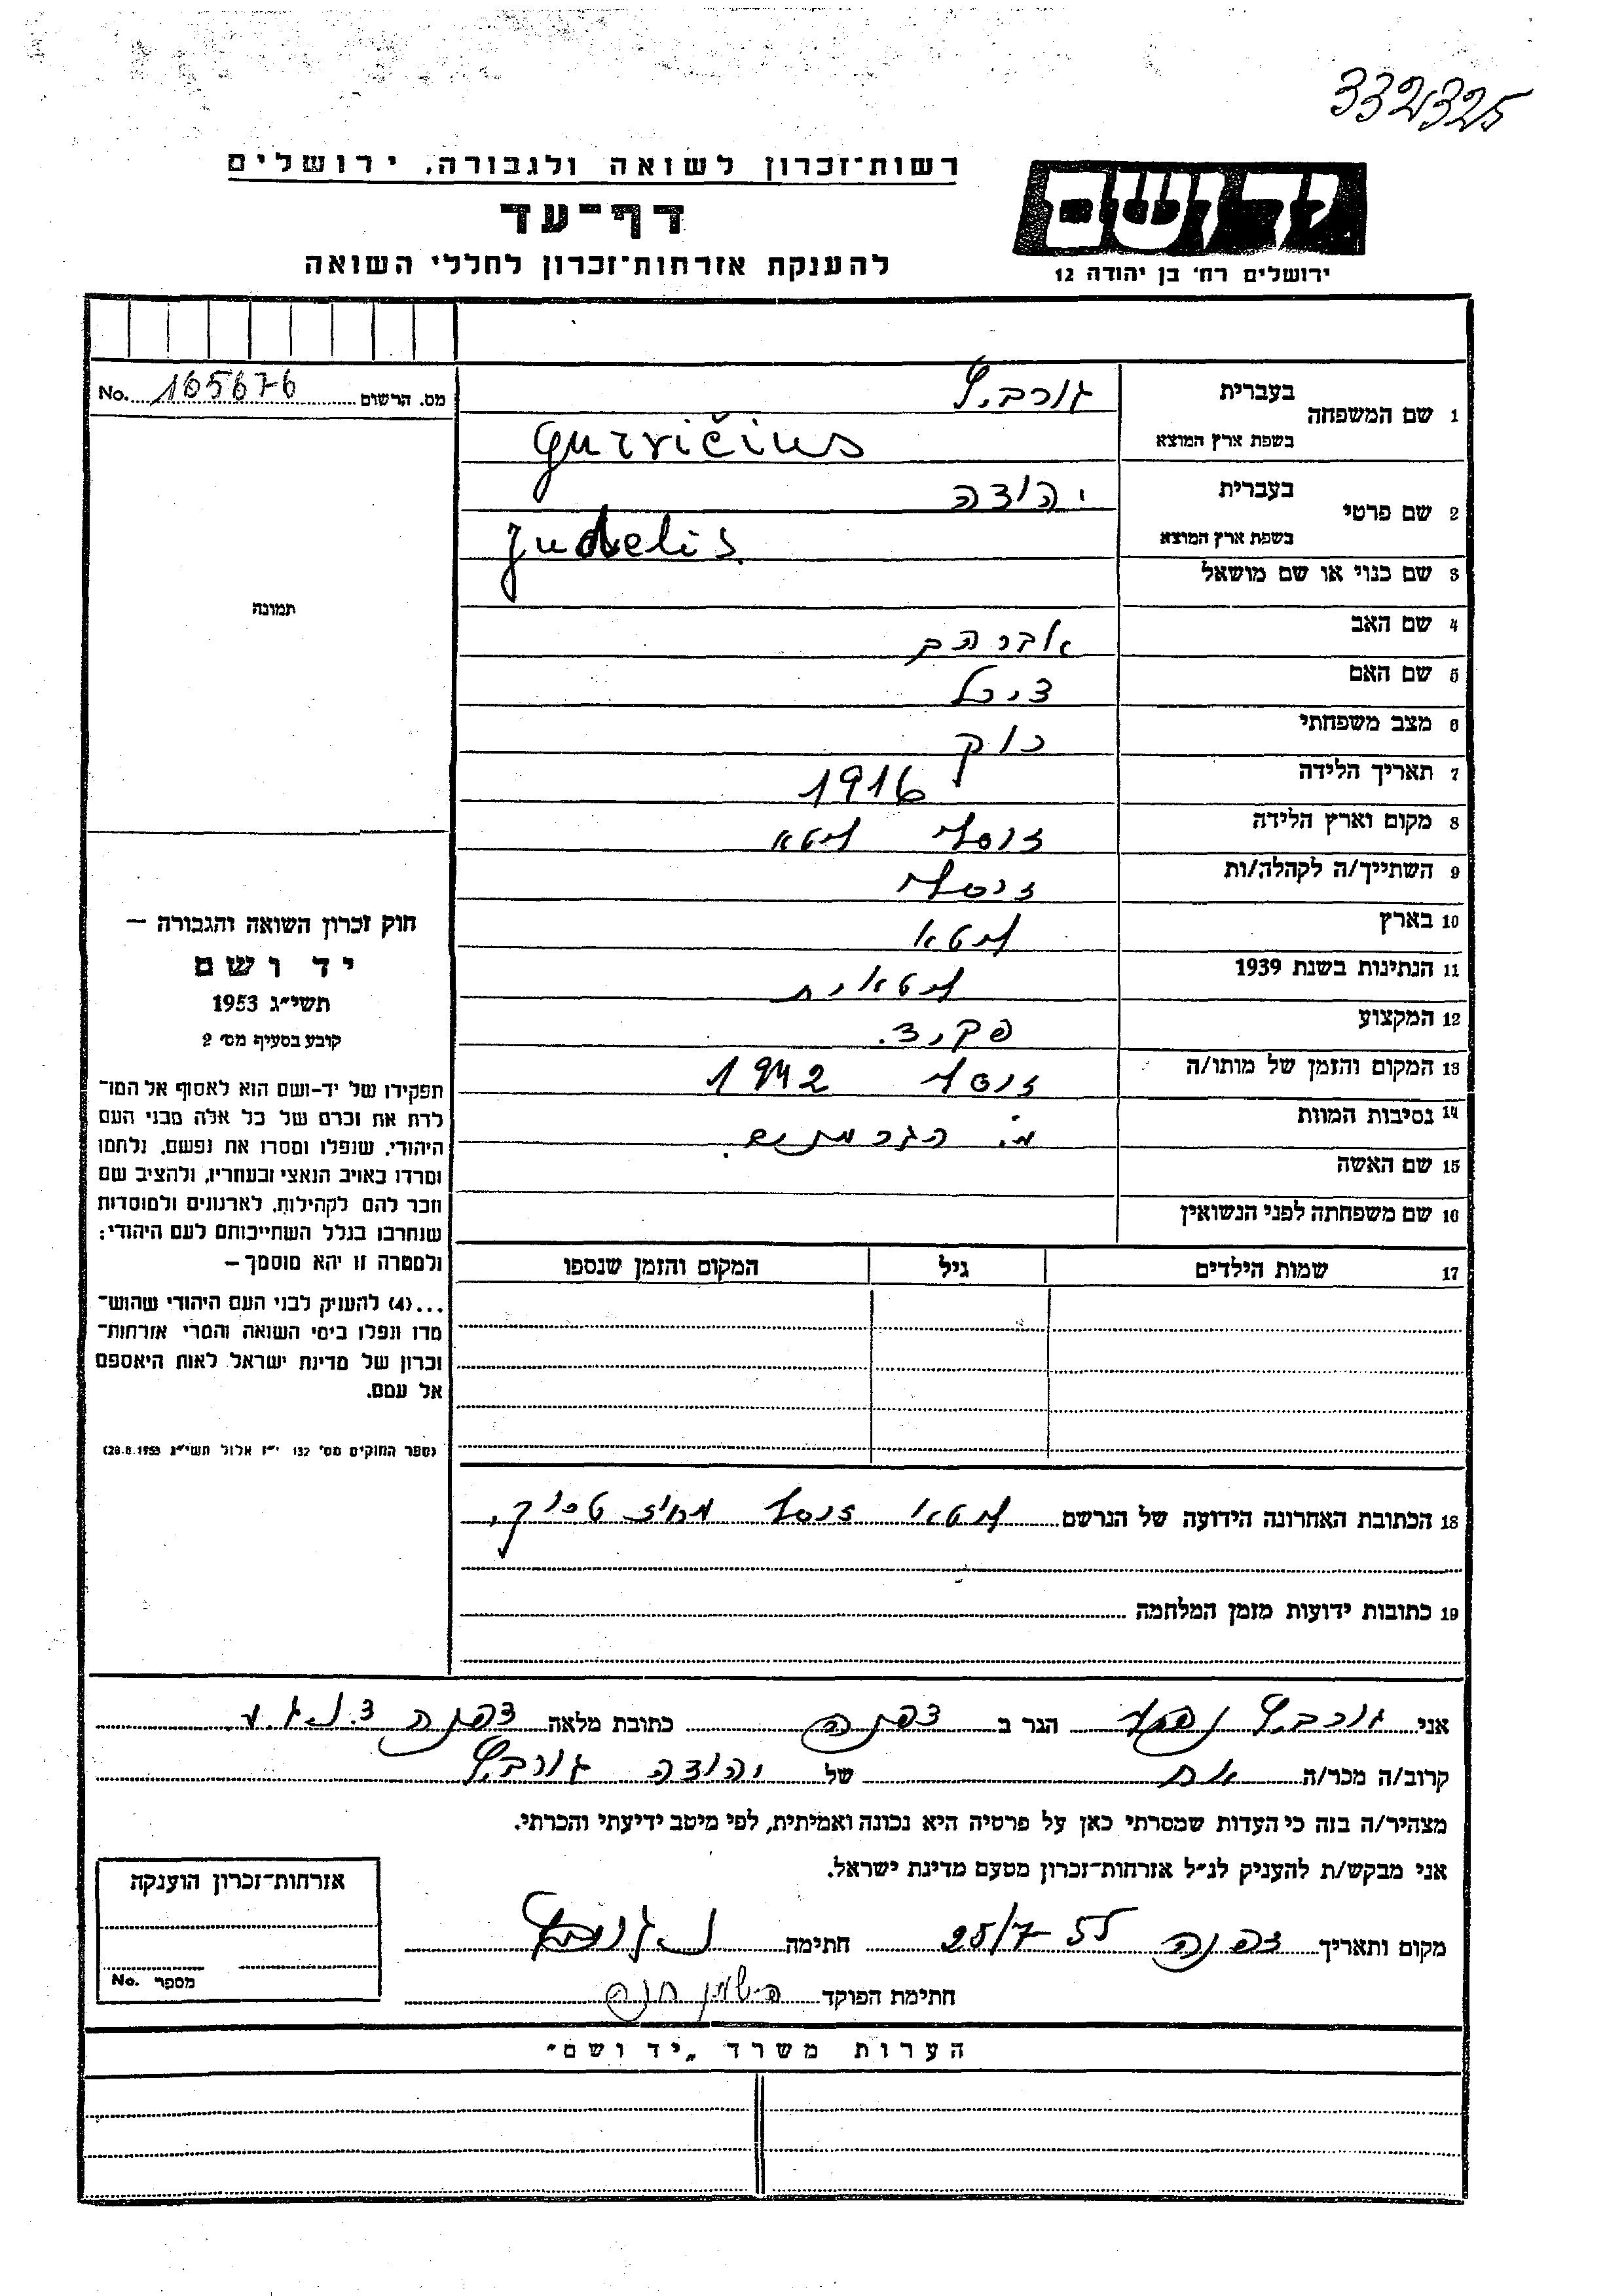 332325
רשות־זכרון לשואה ולגבורה, ירושלים
דף־עד
להענקת אזרחות־זכרון לחללי השואה
יד ושם
ירושלים רח׳ בן יהודה 12
מס. הרשום 165676 No.
תמונה
1 שם המשפחה
בעברית גורביץ
בשפת ארץ המוצא Gurvičius
2 שם פרטי
בעברית יהודה
בשפת ארץ המוצא Judelis
3 שם כנוי או שם מושאל
4 שם האב אברהם
5 שם האם
6 מצב משפחתי רווק
7 תאריך הלידה 1916
8 מקום וארץ הלידה ליטא
9 השתייך/ה לקהלה/ות
10 בארץ ליטא
11 הנתינות בשנת 1939 ליטאית
12 המקצוע פקיד.
13 המקום והזמן של מותו/ה 1942
14 נסיבות המוות ע״י הגרמנים.
15 שם האשה
16 שם משפחתה לפני הנשואין
17 שמות הילדים גיל המקום והזמן שנספו
חוק זכרון השואה והגבורה —
יד ושם
תשי״ג 1953
קובע בסעיף מס׳ 2
תפקידו של יד-ושם הוא לאסוף אל המו־
לדת את זכרם של כל אלה מבני העם
היהודי, שנפלו ומסרו את נפשם, נלחמו
ומרדו באויב הנאצי ובעוזריו, ולהציב שם
וזכר להם לקהילות, לארגונים ולמוסדות
שנחרבו בגלל השתייכותם לעם היהודי;
ולמטרה זו יהא מוסמך —
...(4) להעניק לבני העם היהודי שהוש־
מדו ונפלו בימי השואה והמרי אזרחות־
זכרון של מדינת ישראל לאות היאספם
אל עמם.
(ספר החוקים מס׳ 132 י״ז אלול תשי״ג 28.8.1953)
18 הכתובת האחרונה הידועה של הנרשם ליטא
19 כתובות ידועות מזמן המלחמה
אני גורביץ הגר ב דפנה כתובת מלאה דפנה
קרוב/ה מכר/ה אח של יהודה גורביץ
מצהיר/ה בזה כי העדות שמסרתי כאן על פרטיה היא נכונה ואמיתית, לפי מיטב ידיעתי והכרתי.
אני מבקש/ת להעניק לנ״ל אזרחות־זכרון מטעם מדינת ישראל.
מקום ותאריך דפנה 25/7-55 חתימה
חתימת הפוקד
אזרחות־זכרון הוענקה
מספר No.
הערות משרד „יד ושם״